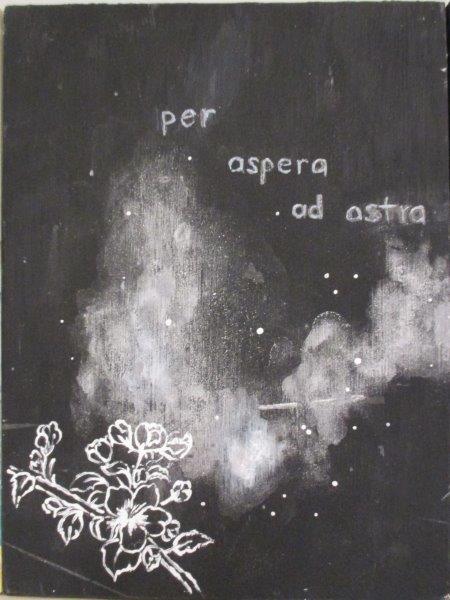 per
aspera
ad astra